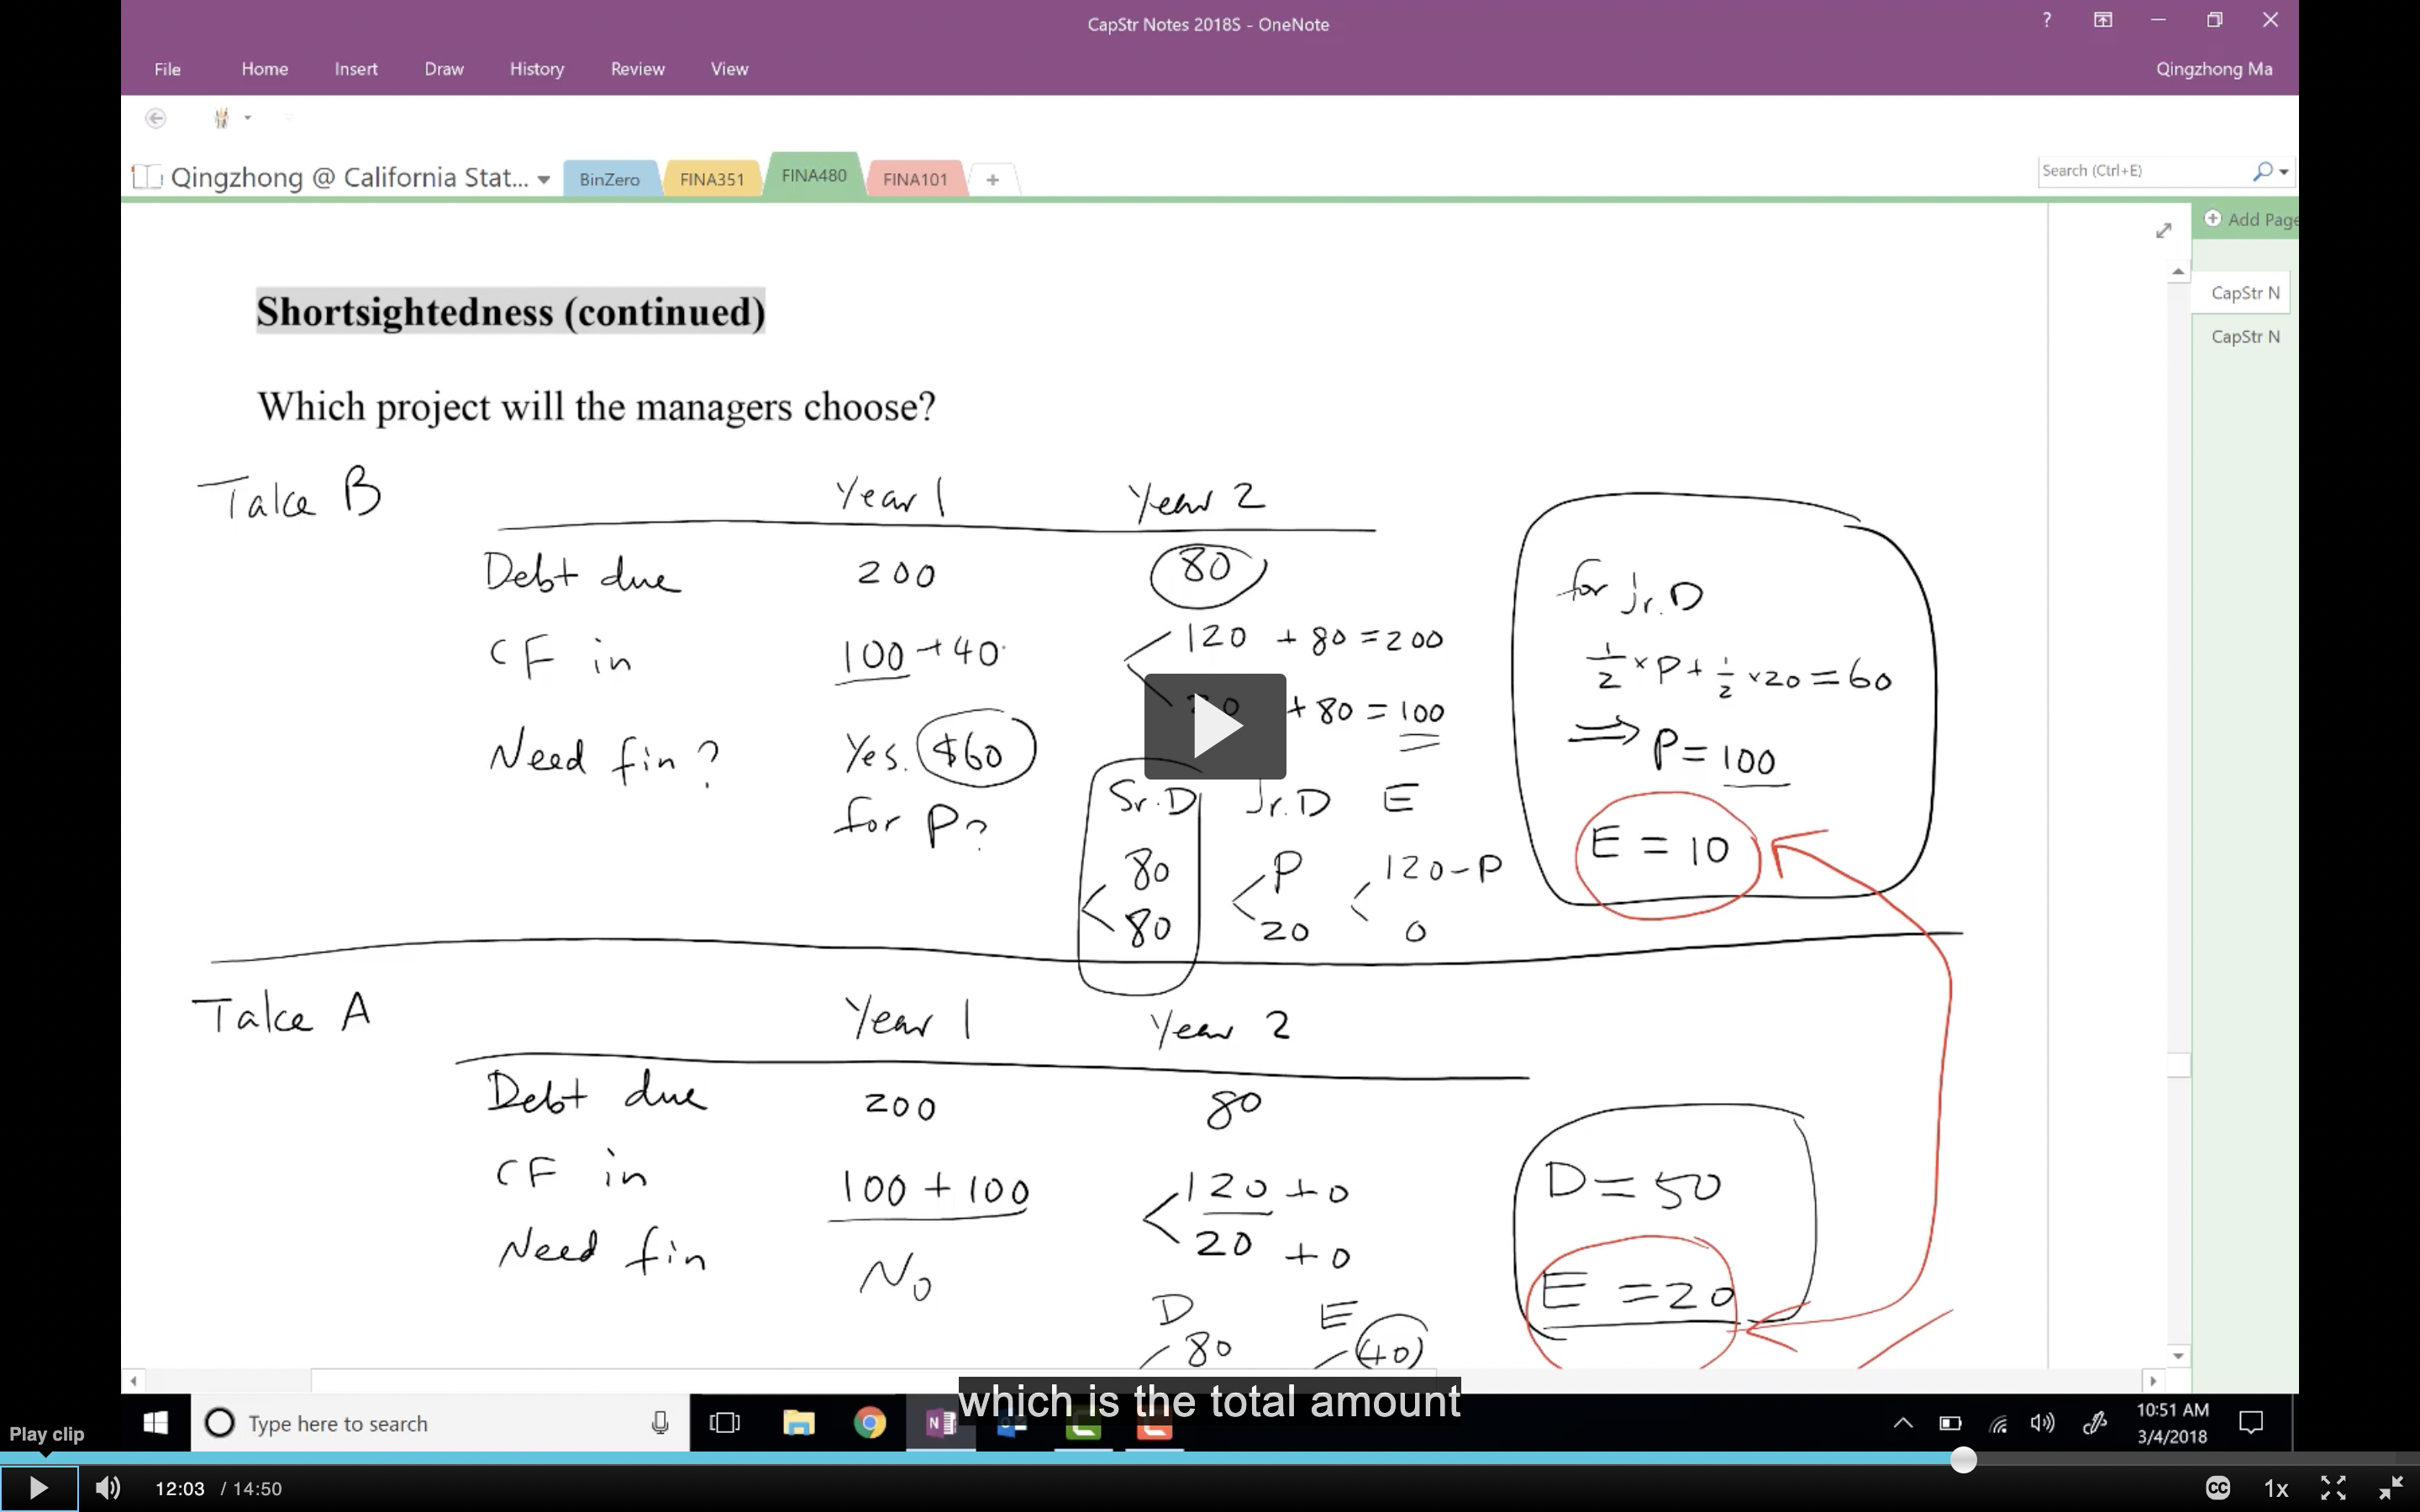 CapStr Notes 2018S - OneNote
?
File Home Insert Draw History Review View
Qingzhong Ma
Qingzhong @ California Stat... BinZero FINA351 FINA480 FINA101 +
Search (Ctrl+E)
Add Page
CapStr N
CapStr N
Shortsightedness (continued)
Which project will the managers choose?
Take B
Year 1 Year 2
Debt due 200 80
CF in 100 + 40 120 + 80 = 200
+ 80 = 100
Need fin? Yes. $60
for P?
Sr. D Jr. D E
80 P 120 - P
80 20 0
for jr. D
1/2 × P + 1/2 × 20 = 60
⇒ P = 100
E = 10
Take A
Year 1 Year 2
Debt due 200 80
CF in 100 + 100 120 + 0
20 + 0
Need fin No
D E
80 40
D = 50
E = 20
which is the total amount
Type here to search
10:51 AM
3/4/2018
Play clip
12:03 / 14:50
CC 1x